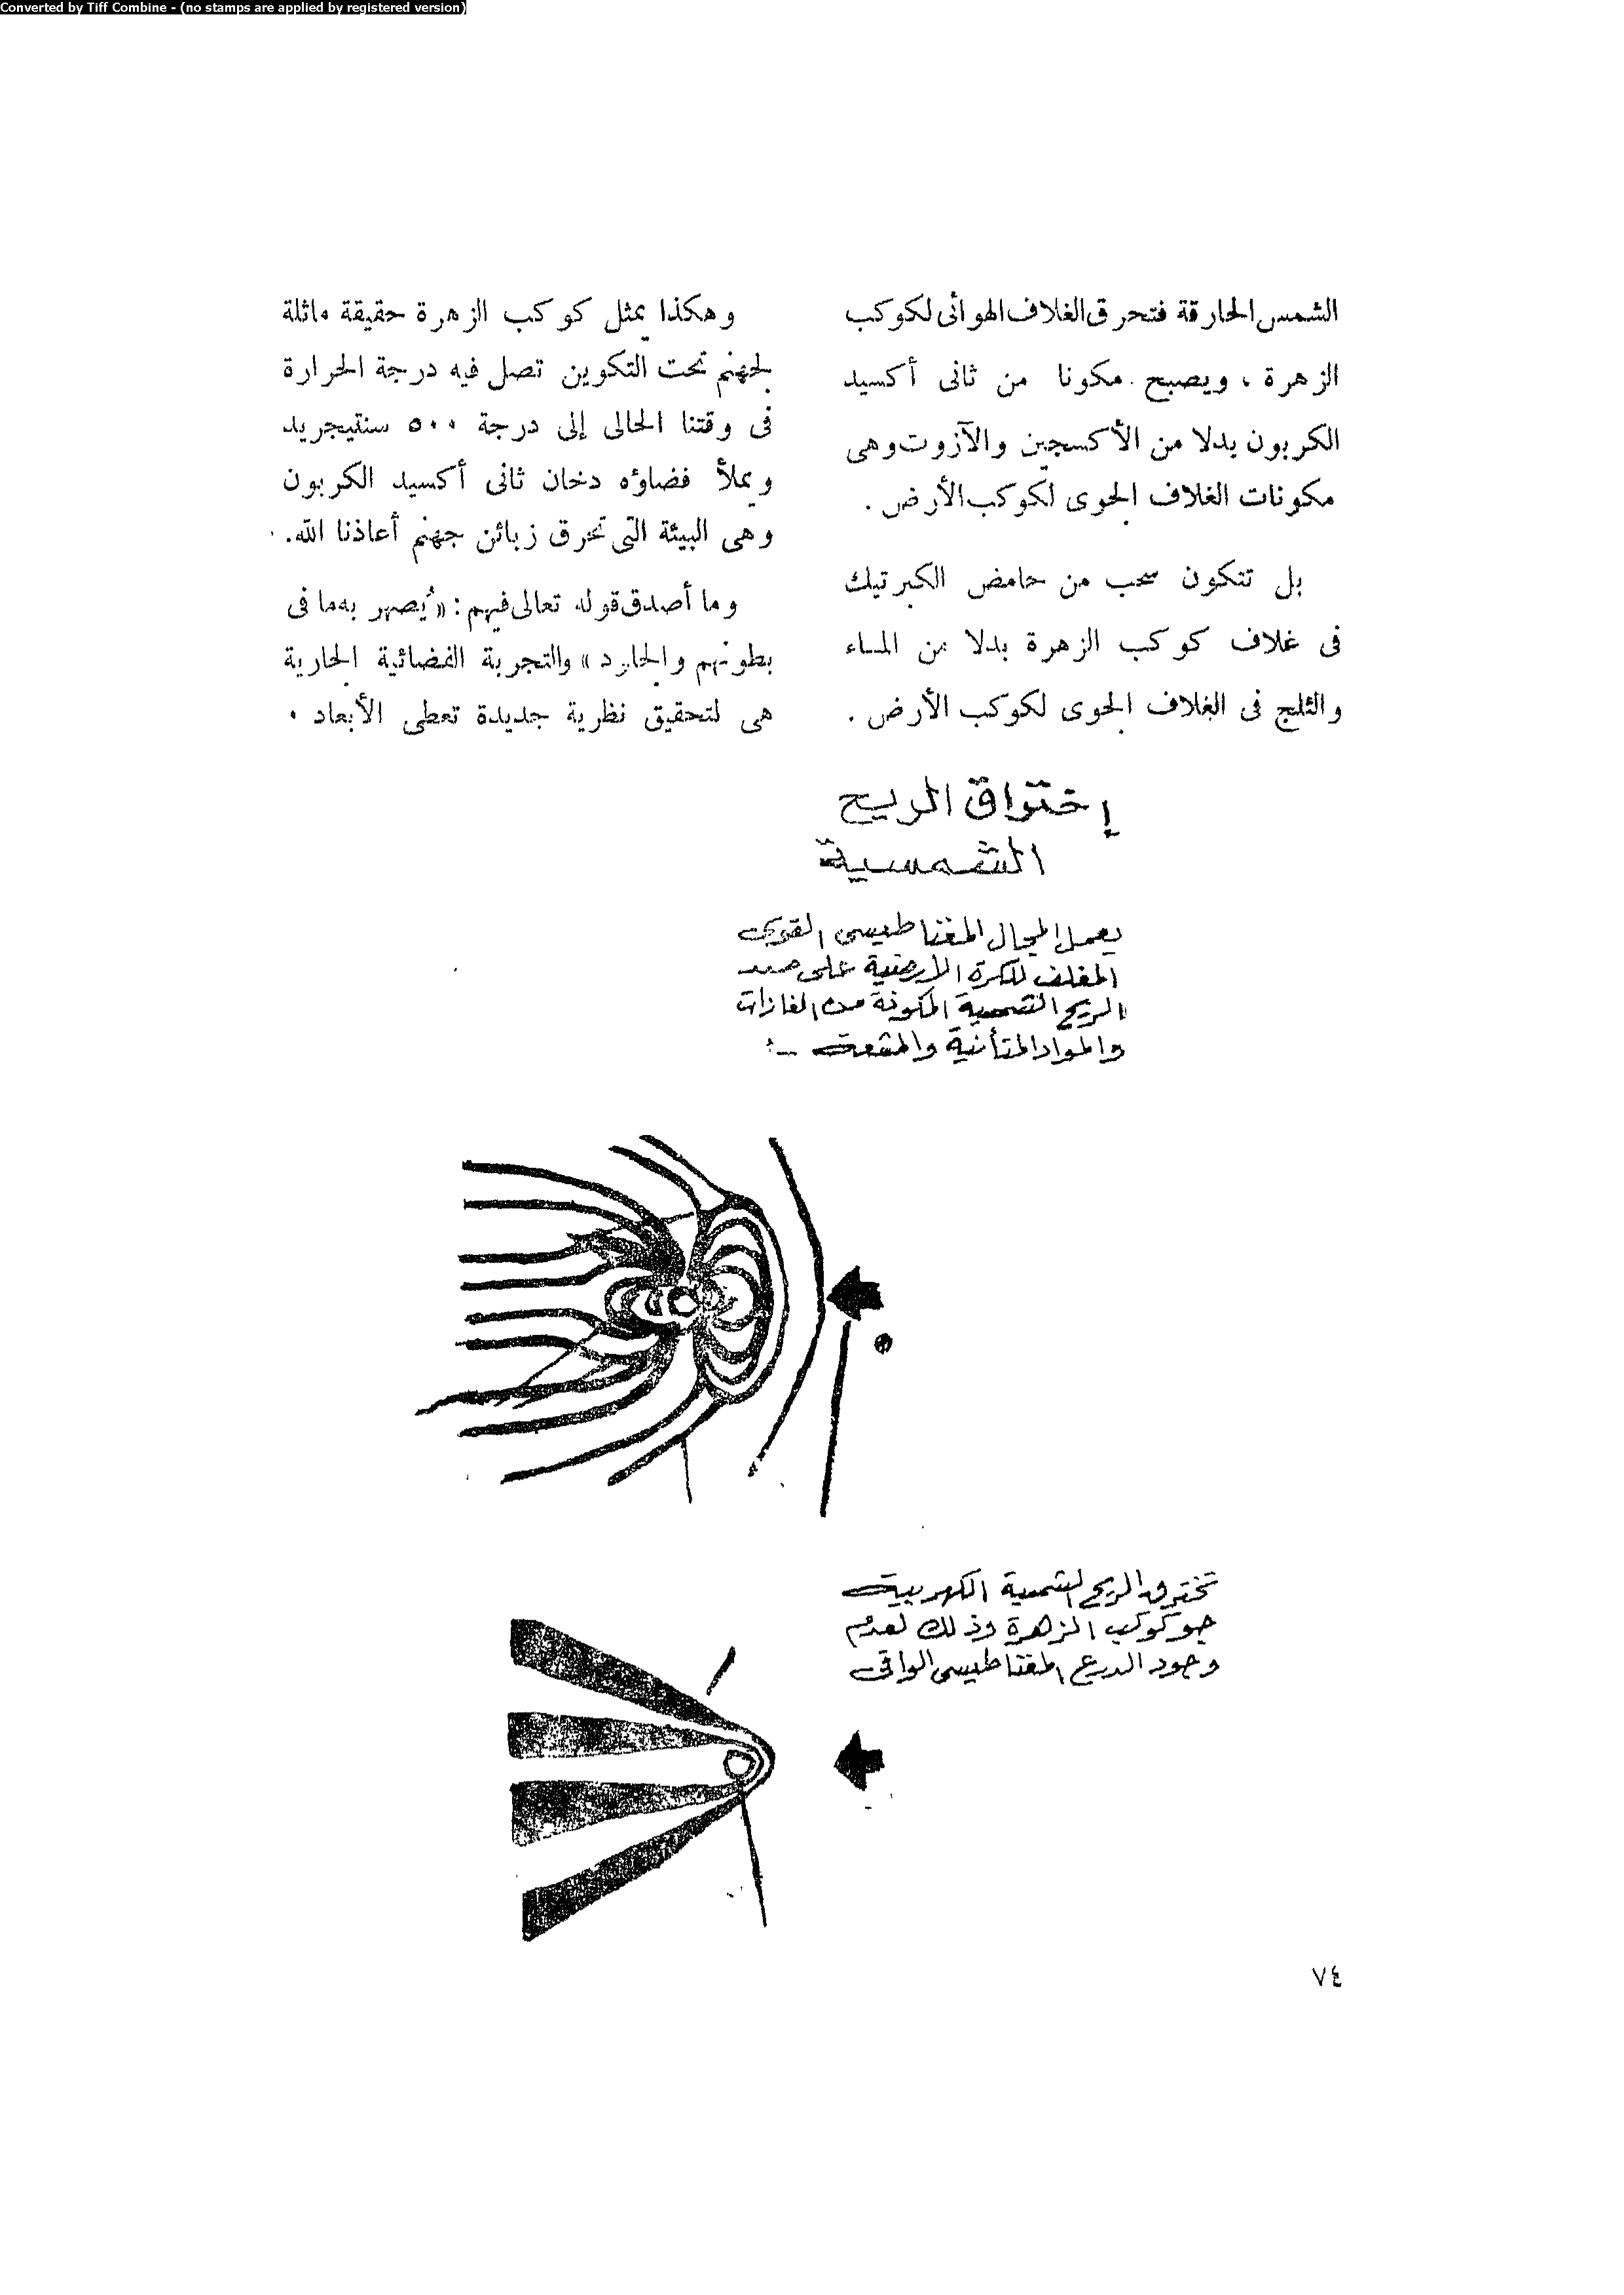 Converted by Tiff Combine - (no stamps are applied by registered version)
الشمس الحارقة فتحرق الغلاف الهوائى لكوكب
الزهرة ، ويصبح مكونا من ثانى أكسيد
الكربون بدلا من الأكسجين والآزوت وهى
مكونات الغلاف الجوى لكوكب الأرض .
بل تتكون سحب من حامض الكبرتيك
فى غلاف كوكب الزهرة بدلا من الماء
والثلج فى الغلاف الجوى لكوكب الأرض .
وهكذا يمثل كوكب الزهرة حقيقة ماثلة
لجهنم تحت التكوين تصل فيه درجة الحرارة
فى وقتنا الحالى إلى درجة ٥٠٠ سنتيجريد
ويملأ فضاؤه دخان ثانى أكسيد الكربون
وهى البيئة التى تحرق زبائن جهنم أعاذنا الله.
وما أصدق قوله تعالى فيهم : «يُصهر به ما فى
بطونهم والجلود» والتجربة الفضائية الجارية
هى لتحقيق نظرية جديدة تعطى الأبعاد .
إختراق الريح
الشمسية
يعمل المجال المغناطيسى القوى
المغلف للكرة الأرضية على صد
الريح الشمسية المكونة من الغازات
والمواد المتأنية والمشعة -:
تخترق الريح الشمسية الكهربية
جو كوكب الزهرة وذلك لعدم
وجود الدرع المغناطيسى الواقى
٧٤